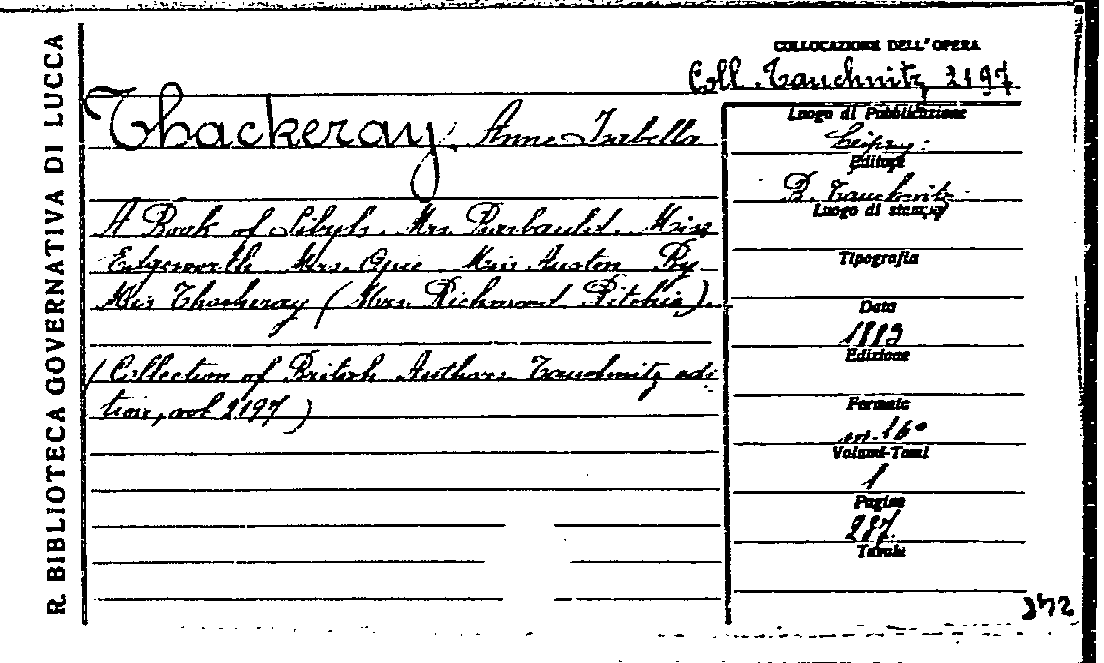 R. BIBLIOTECA GOVERNATIVA DI LUCCA
COLLOCAZIONE DELL'OPERA
Coll. Tauchnitz 2197
Thackeray Anne Isabella
A Book of Sibyls. Mrs. Barbauld. Miss
Edgeworth Mrs. Opie Miss Austen By
Miss Thackeray (Mrs. Richmond Ritchie).
(Collection of British Authors Tauchnitz edi
tion, vol 2197)
Luogo di Pubblicazione
Leipzig
Editore
B. Tauchnitz
Luogo di stampa
Tipografia
Data
1883
Edizione
Formato
in-16°
Volumi-Tomi
1
Pagine
287
Tavole